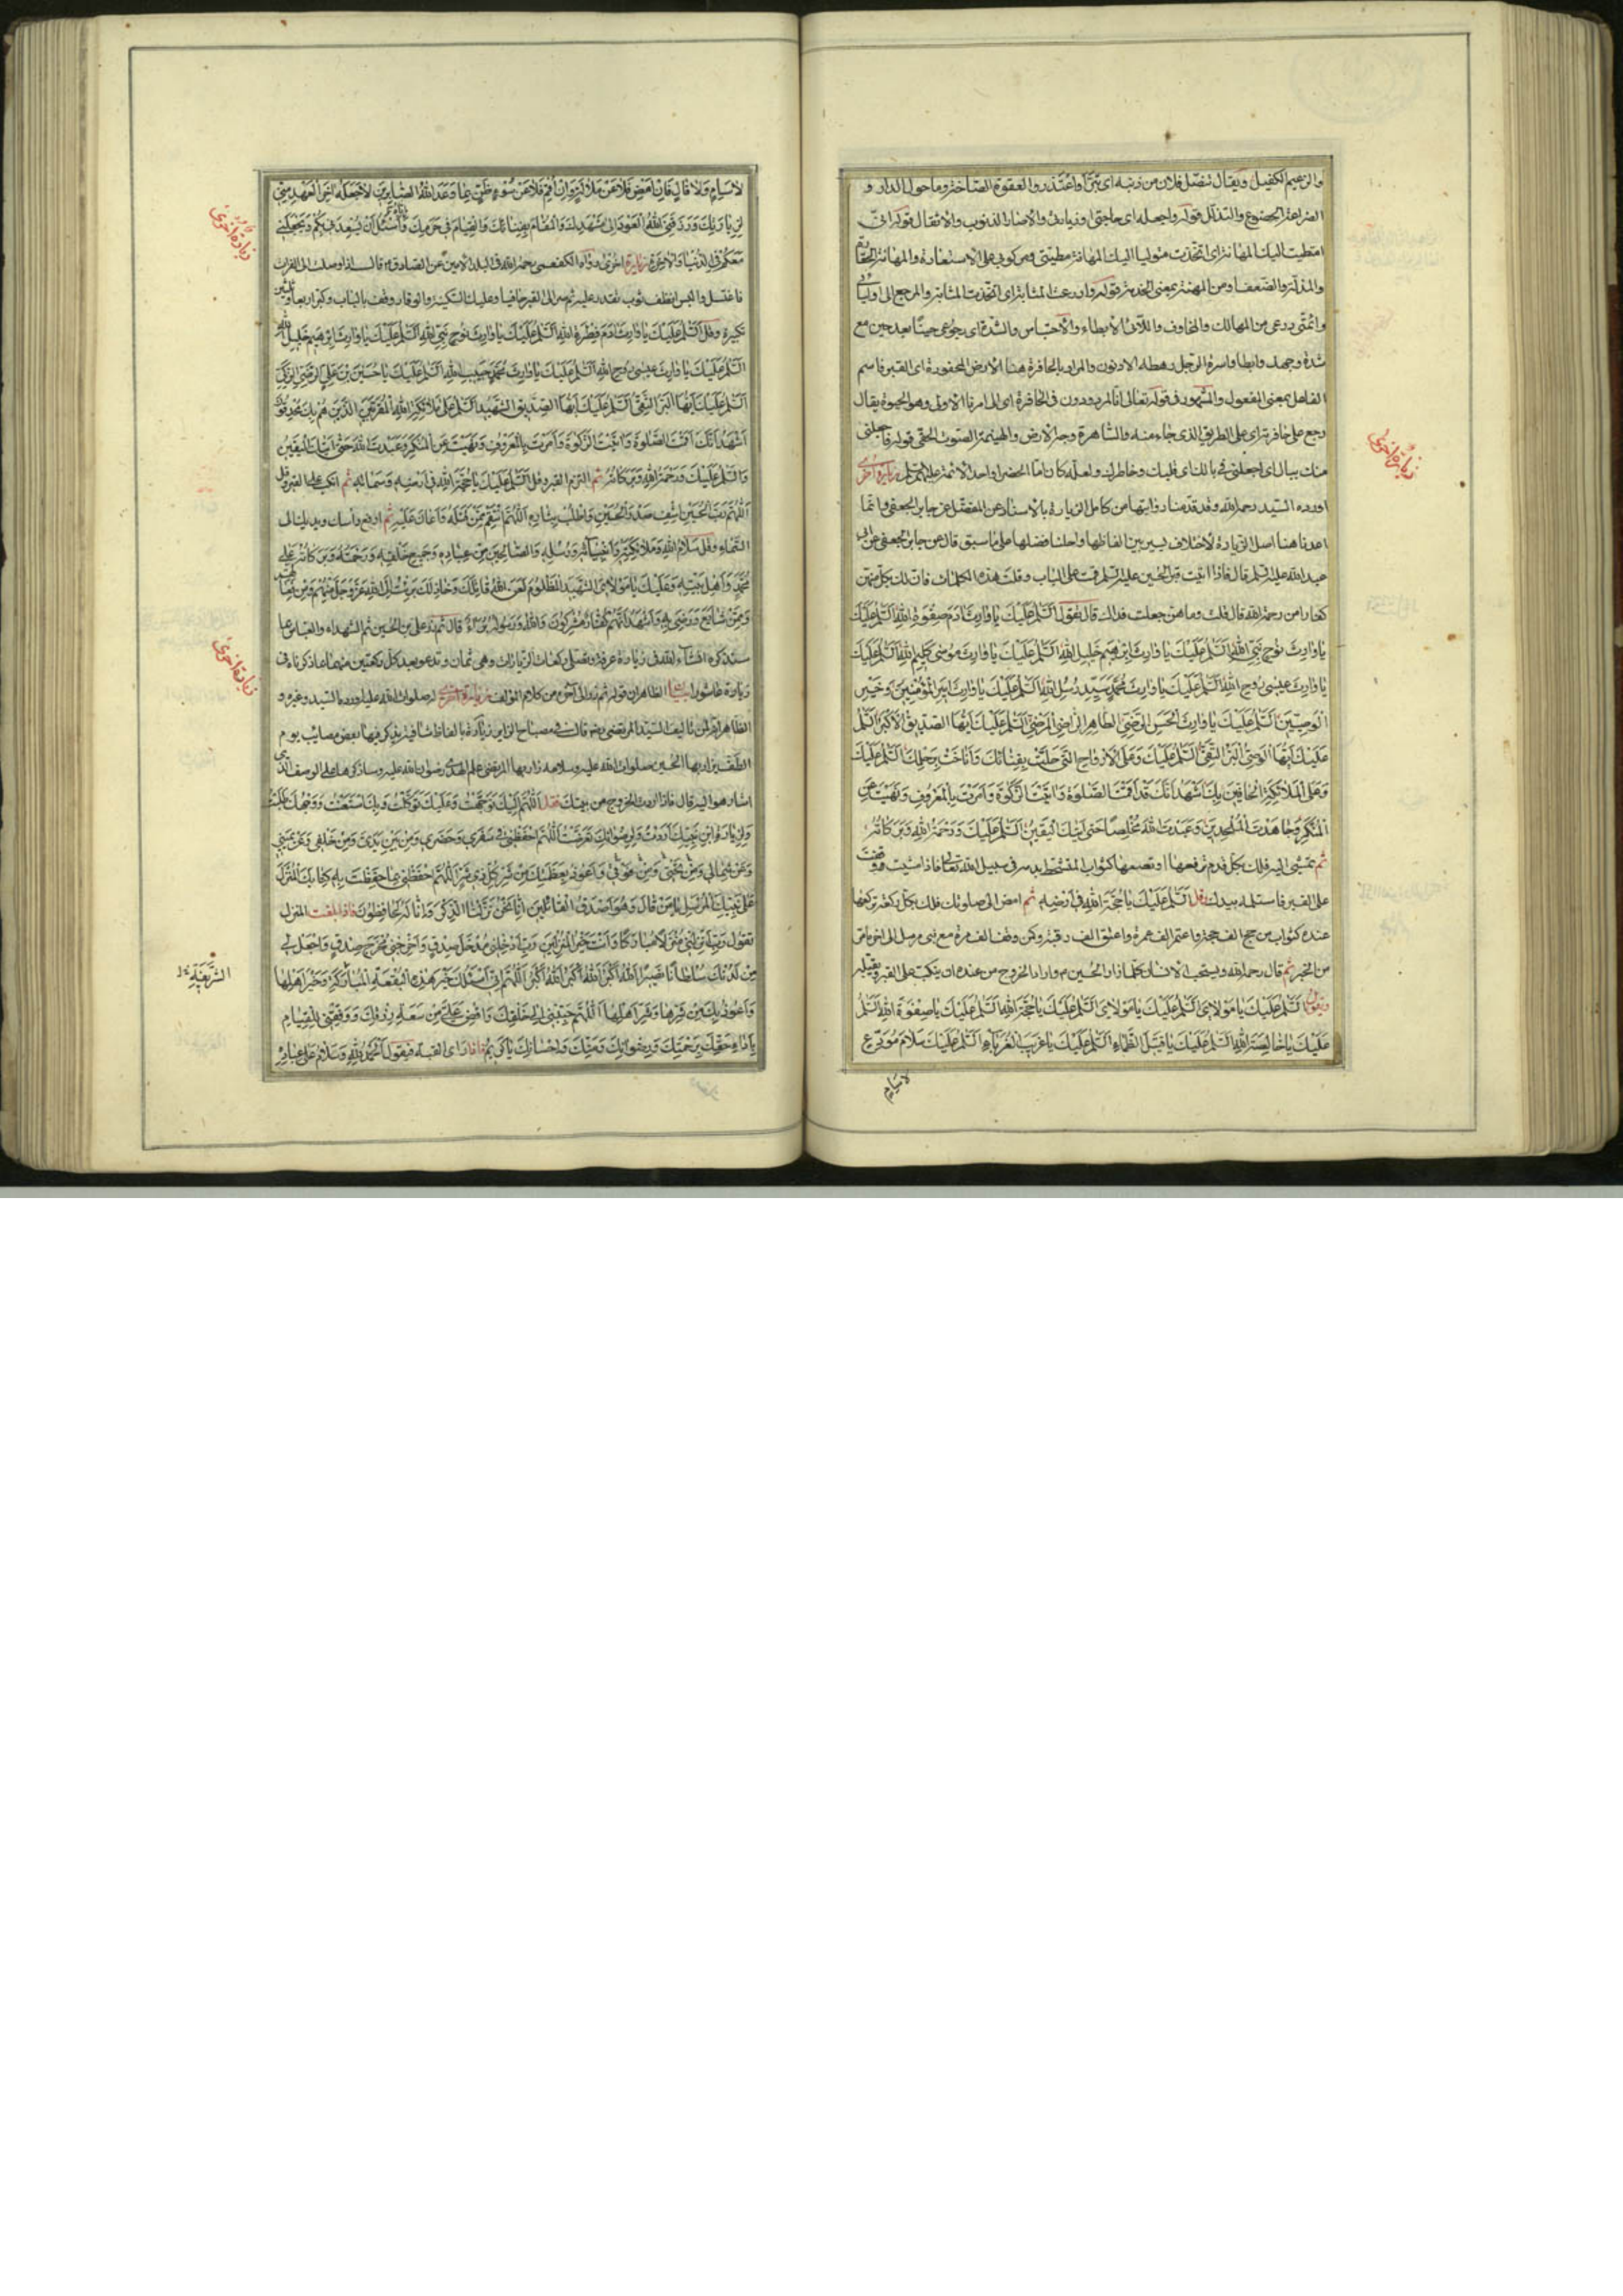 والزعيم الكفيل ويقال تنصّل فلان من ذنبه اى تبرّأ واعتذر والعقوة الساحة وما حول الدار و
الضراعة الخضوع والتذلّل قوله واجعله اى حاجتى او زيارتى والاصار الذنوب والاثقال قوله انّى
امتطيت اليك المهانة اى اتخذت متوليا اليك المهانة مطيتى ومركوبى على الاستعارة والمهانة الحقارة
والمذلّة والضعف ومن المهنة بمعنى الخدمة قوله وادرعت المثابة اى اتخذت المثابة والمرجع الى اوليائى
وائمّتى درعى من المهالك والمخاوف واللأى الابطاء والاحتباس والشدّة اى رجوعى حينًا بعد حين مع
شدة وجهد وابطا واسرة الرجل رهطه الادنون والمراد بالحافرة هنا الارض المحفورة اى القبر فاسم
الفاعل بمعنى المفعول والمشهور فى قوله تعالى ائنّا لمردودون فى الحافرة اى الى امرنا الاولى وهو الحيوة يقال
رجع على حافرته اى على الطريق الذى جاء منه والساهرة وجه الارض والهينمة الصوت الخفى قوله فاجعلنى
منك ببال اى اجعلنى فى بالك اى قلبك وخاطرك ولعلّه كان امّا الخضر او احد الائمة عليهم السّلم زيارة اخرى
اورده السّيد رحمه الله وقد قدّمنا روايتها من كامل الزيارة بالاسناد عن المفضّل عن جابر الجعفى وانّما
اعدنا هنا اسل الزيارة لاختلاف يسير بين الفاظها واحلنا فضلها على ما سبق قال عن جابر الجعفى عن ابى
عبد الله عليه السّلم قال فاذا اتيت قبر الحسين عليه السّلم قمت على الباب وقلت هذه الكلمات فانّ لك بكلّ منهنّ
كفلا من رحمة الله قال قلت وما هنّ جعلت فداك قال تقول السّلم عليك يا وارث ادم صفوة الله السّلم عليك
يا وارث نوح نبىّ الله السّلم عليك يا وارث ابرٰهيم خليل الله السّلم عليك يا وارث موسى كليم الله السّلم عليك
يا وارث عيسى روح الله السّلم عليك يا وارث محمّد سيّد رسل الله السّلم عليك يا وارث امير المؤمنين وخير
الوصيّين السّلم عليك يا وارث الحسن الرّضىّ الطّاهر الرّاضى المرضىّ السّلم عليك ايّها الصدّيق الاكبر السّلم
عليك ايّها الوصىّ البرّ التّقىّ السّلم عليك وعلى الارواح الّتى حلّت بفنائك واناخت برحلك السّلم عليك
وعلى الملائكة الحافّين بك اشهد انّك قد اقمت الصّلوة واتيت الزّكوة وامرت بالمعروف ونهيت عن
المنكر وجاهدت الملحدين وعبدت الله مخلصًا حتّى اتيك اليقين السّلم عليك ورحمة الله وبركاته
ثم تمشى اليه فلك بكلّ قدم ترفعها او تضعها كثواب المتشحّط بدمه فى سبيل الله تعالى فاذا مشيت ووقفت
على القبر فاستلمه بيدك وقل السّلم عليك يا حجّة الله فى ارضه ثم امض الى صلوتك فلك بكلّ ركعة تركعها
عنده كثواب من حجّ الف حجة واعتمر الف عمرة واعتق الف رقبة وكمن وقف الف مرة مع نبى مرسل الى اخر ما مرّ
من الخبر ثم قال رحمه الله ويستحبّ للانسان كلّما زار الحسين م واراد الخروج من عنده ان ينكبّ على القبر ويقبّله
ويقول السّلم عليك يا مولاى السّلم عليك يا مولاى السّلم عليك يا حجّة الله السّلم عليك يا صفوة الله السّلم
عليك يا خالصة الله السّلم عليك يا قتيل الظّماء السّلم عليك يا غريب الغرباء السّلم عليك سلام مودّع
لا سئم
زيارة اخرى
لا سئم ولا قال فان امض فلا عن ملالة وان اقم فلا عن سوء ظنّ بما وعد الله الصّابرين لا جعله اخر العهد منّى
لزيارتك ورزقنى الله العود الى مشهدك والمقام بفنائك والقيام فى حرمك وايّاه اسئل ان يسعدنى بكم ويجعلنى
معكم فى الدّنيا والاخرة زيارة اخرى رواه الكفعمى رحمه الله فى البلد الامين عن الصادق م قال اذا وصلت الى الفرات
فاغتسل والبس انظف ثوب تقدر عليه ثم سر الى القبر حافيا وعليك السّكينة والوقار وقف بالباب وكبّر اربعا وثلثين
تكبيرة وقل السّلم عليك يا وارث ادم فطرة الله السّلم عليك يا وارث نوح نبىّ الله السّلم عليك يا وارث ابرٰهيم خليل الله
السّلم عليك يا وارث عيسى روح الله السّلم عليك يا وارث محمّد حبيب الله السّلم عليك يا حسين بن علىّ الرّضىّ الزّكىّ
السّلم عليك ايّها البرّ التّقىّ السّلم عليك ايّها الصّدّيق الشّهيد السّلم على ملائكة الله المقرّبين الّذين هم بك محدقون
اشهد انّك اقمت الصّلوة واتيت الزّكوة وامرت بالمعروف ونهيت عن المنكر وعبدت الله حتّى اتيك اليقين
والسّلم عليك ورحمة الله وبركاته ثم التزم القبر وقل السّلم عليك يا حجّة الله فى ارضه وسمائه ثم انكبّ على القبر وقل
اللّهمّ ربّ الحسين اشف صدر الحسين واطلب بثاره اللّهمّ انتقم ممّن قتله واعان عليه ثم ارفع راسك ويديك الى
السّماء وقل سلام الله وملائكته وانبيائه ورسله والصّالحين من عباده وجميع خلقه ورحمته وبركاته على
محمّد واهل بيته وعليك يا مولاى الشّهيد المظلوم لعن الله قاتلك وخاذلك برئت الى الله عزّ وجلّ منهم ومن افعالهم
وممّن شايع ورضى به واشهد انّهم كفّار مشركون والله ورسوله برءاء قال ثم زر على بن الحسين ثم الشهداء والعباس بما
سنذكره انشاء الله فى زيارة عرفة وتصلّى ركعات الزيارات وهى ثمان وتدعو بعد كلّ ركعتين منها بما ذكرناه فى
زيارة عاشورا بيان الظاهر ان قوله ثم زر الى اخره من كلام المؤلف زيارة اخرى له صلوات الله عليه اوردها السّيد وغيره و
الظاهر انّه من تأليف السّيد المرتضى رض قال فى مصباح الزاير زيارة بالفاظ شافية يذكر فيها بعض مصائب يوم
الطّفّ يزار بها الحسين صلوات الله عليه وسلامه زار بها المرتضى علم الهدى رضوان الله عليه وساذكرها على الوصف الّذى
اشار هو اليه قال فاذا اردت الخروج من بيتك فقل اللّهمّ اليك توجّهت وعليك توكّلت وبك استعنت ووجهك طلبت
ولزيارة ابن نبيّك اردت ولرضوانك تعرّضت اللّهمّ احفظنى فى سفرى وحضرى ومن بين يدىّ ومن خلفى وعن يمينى
وعن شمالى ومن تحتى ومن فوقى واعوذ بعظمتك من شرّ كلّ ذى شرّ اللّهمّ احفظنى بما حفظت به كتابك المنزل
على نبيّك المرسل يا من قال وهو اصدق القائلين انّا نحن نزّلنا الذّكر وانّا له لحافظون فاذا بلغت المنزل
تقول ربّ انزلنى منزلا مباركًا وانت خير المنزلين ربّ ادخلنى مدخل صدق واخرجنى مخرج صدق واجعل لى
من لدنك سلطانًا نصيرًا الله اكبر الله اكبر الله اكبر اللّهمّ انّى اسئلك خير هذه البقعة المباركة وخير اهلها
واعوذ بك من شرّها وشرّ اهلها اللّهمّ حبّبنى الى خلقك وافض علىّ من سعة رزقك ووفّقنى للقيام
باداء حقّك برحمتك ورضوانك ومنّك واحسانك يا كريم فاذا راى القبّه فيقول الحمد لله وسلام على عباده
زيارة اخرى
زيارة اخرى
الشّريفة